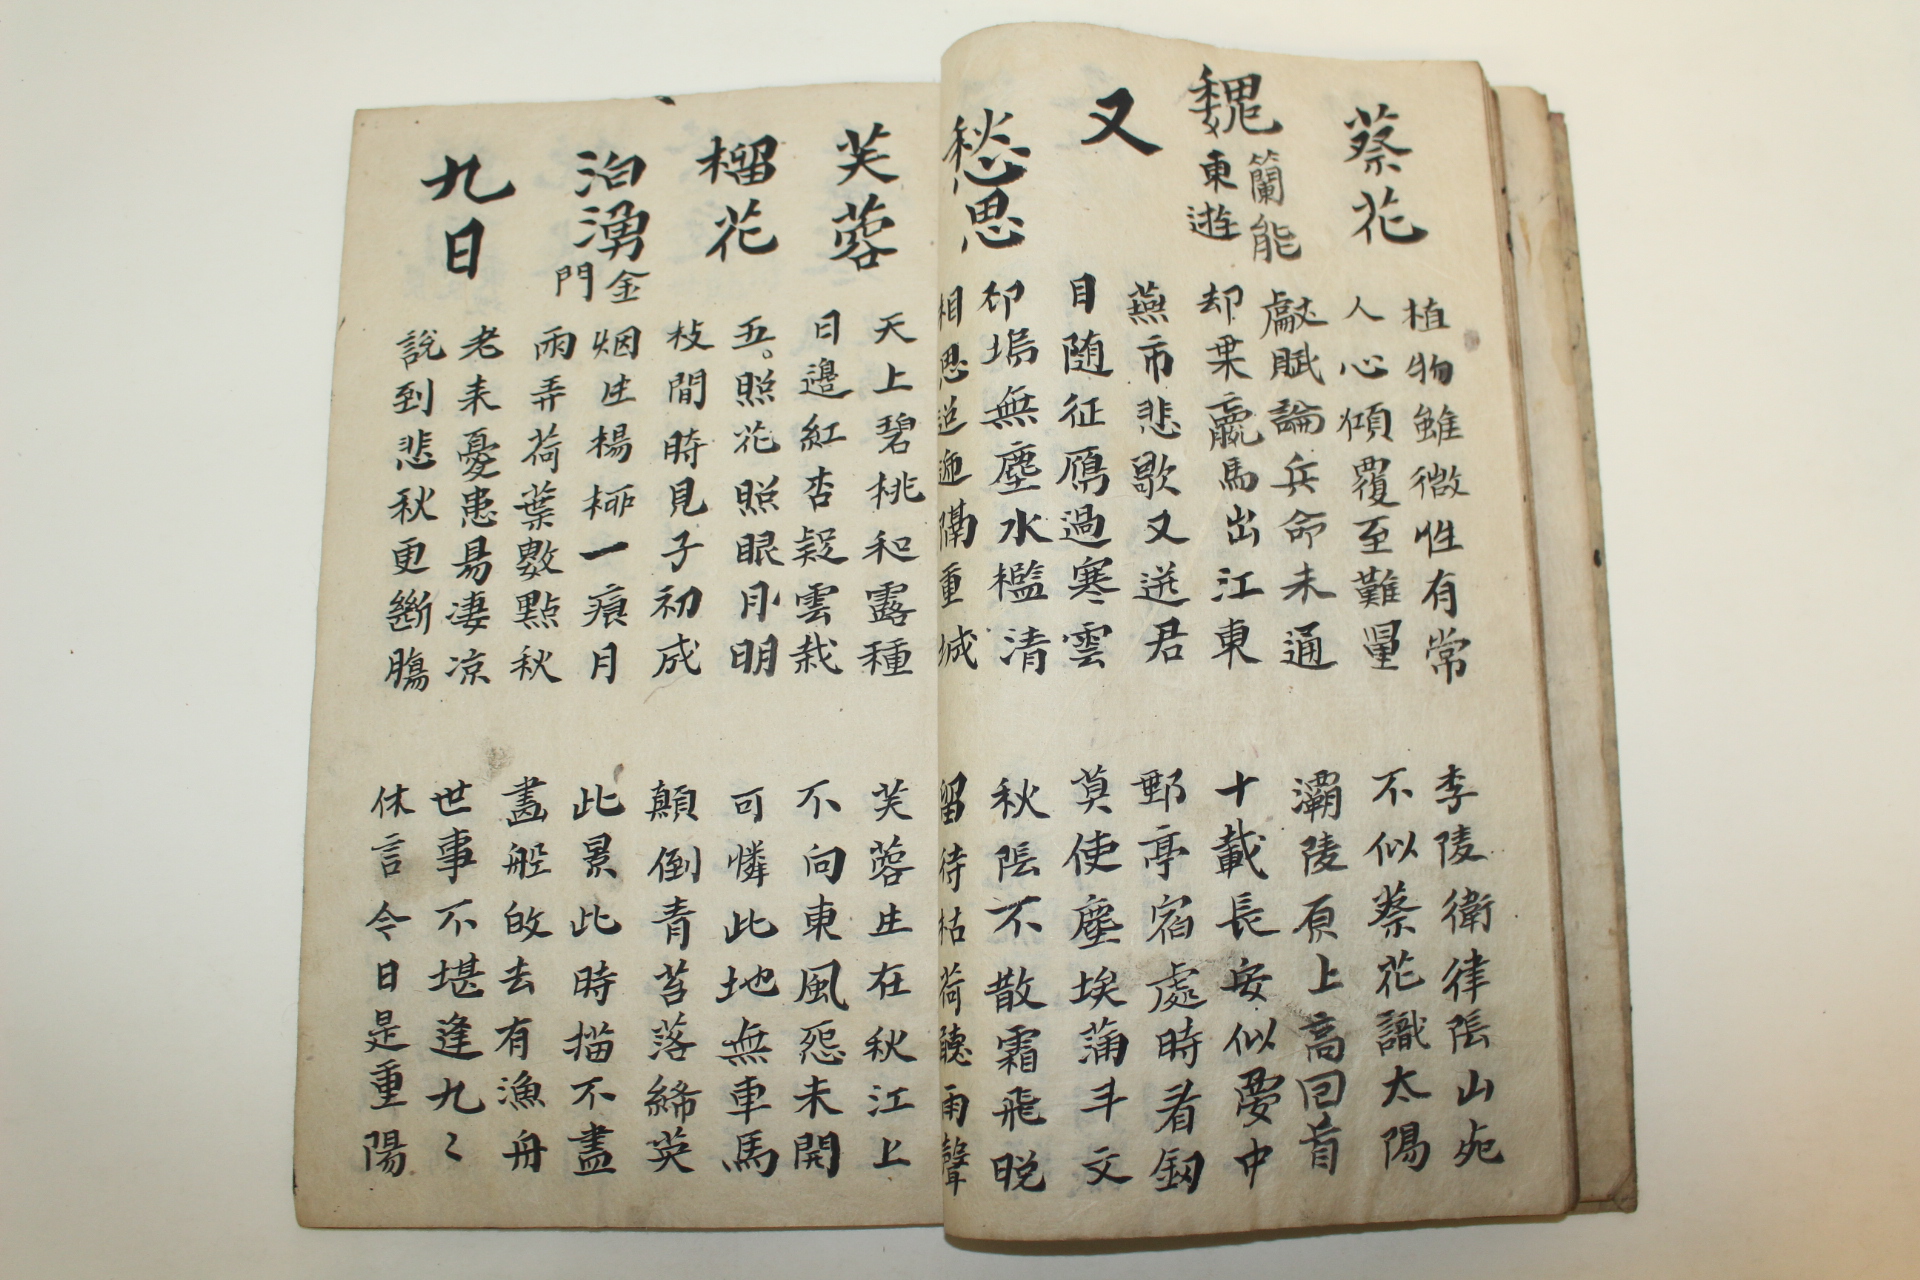 蔡花
植物雖微性有常
李陵衛律陰山死
人心傾覆至難量
不似蔡花識太陽
魏簡能東遊
獻賦論兵命未通
灞陵原上高回首
却乗羸馬出江東
十載長安似夢中
又
燕市悲歌又送君
郵亭宿處時看釼
目随征鴈過寒雲
莫使塵埃蒲斗文
愁思
竹塢無塵水檻清
秋陰不散霜飛晚
相思迢逓隔重城
留待枯荷聽雨聲
芙蓉
天上碧桃和露種
芙蓉生在秋江上
日邊紅杏疑雲栽
不向東風怨未開
榴花
五月照花照眼明
可憐此地無車馬
枝間時見子初成
顛倒青苔落絳英
泊湧金門
烟生楊柳一痕月
此景此時描不盡
雨弄荷葉數點秋
畵舩的去有漁舟
九日
老来憂患易凄凉
世事不堪逢九〻
說到悲秋更斷膓
休言今日是重陽